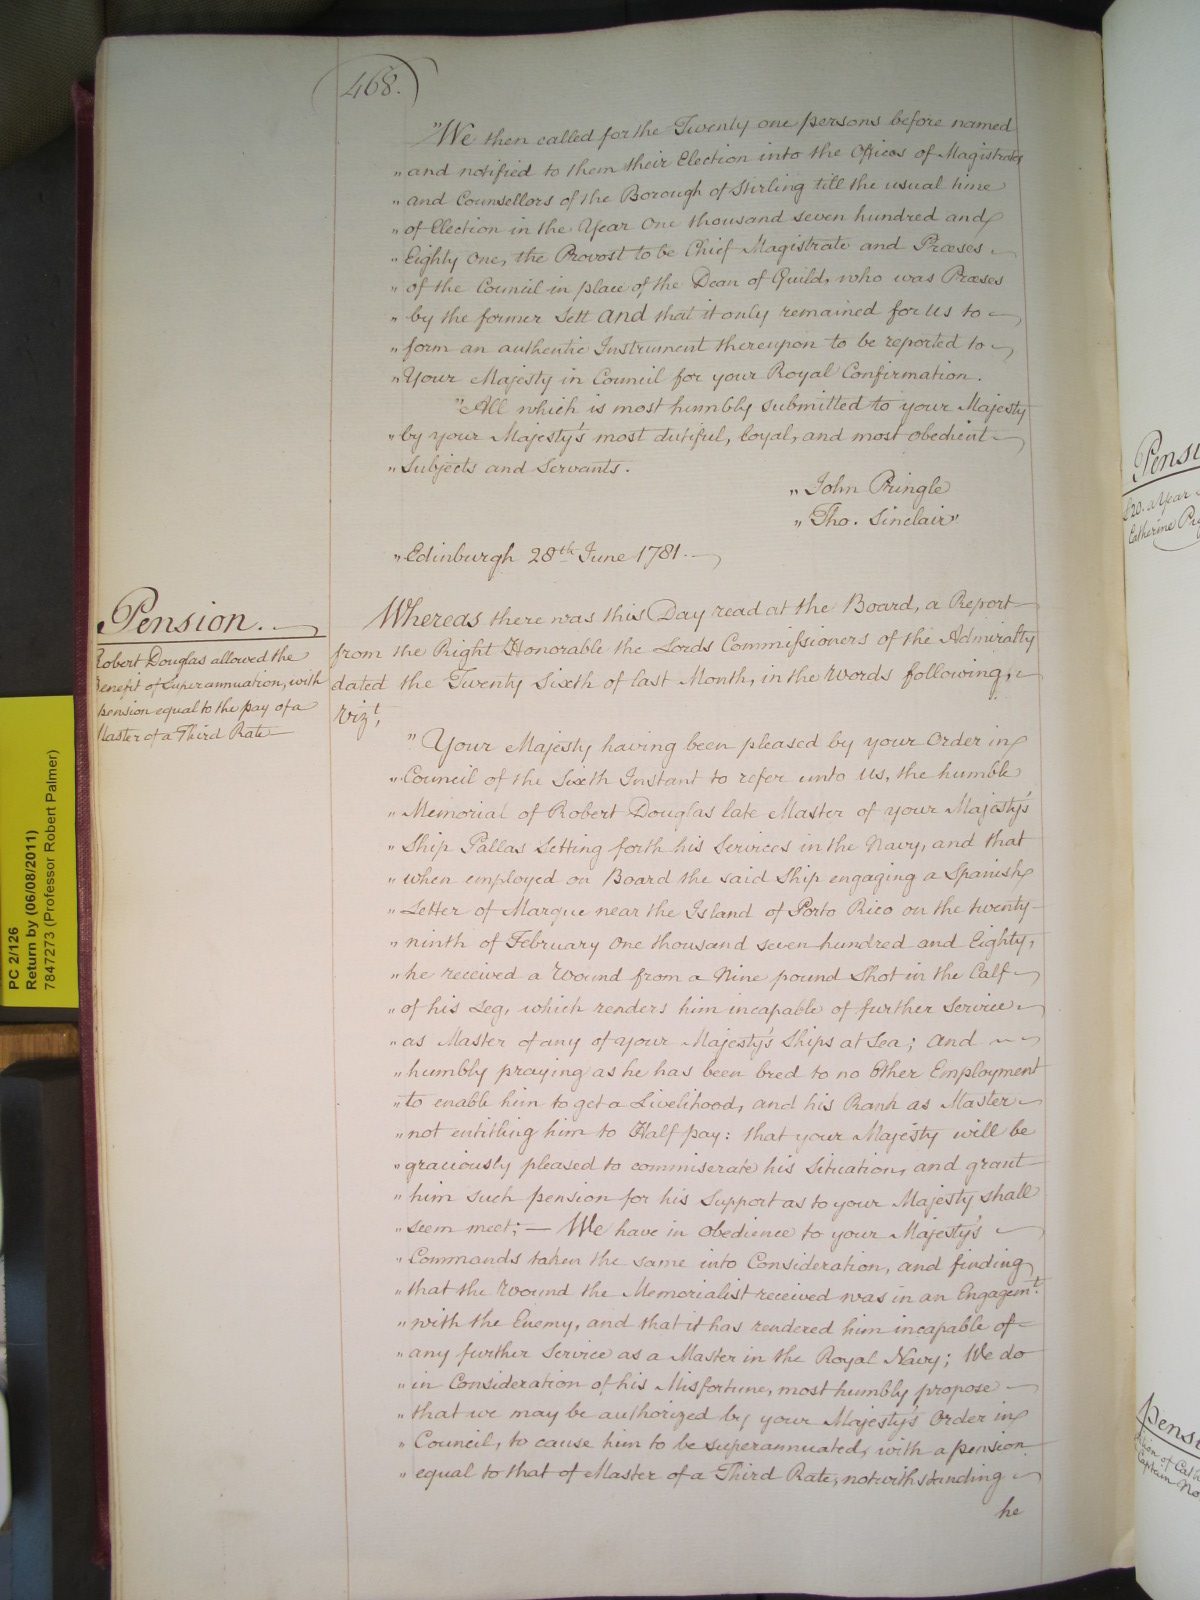 468.
"We then called for the Twenty one persons before named
" and notified to them their Election into the Offices of Magistrates
" and Counsellors of the Borough of Stirling till the usual time
" of Election in the Year One thousand seven hundred and
" Eighty One, the Provost to be Chief Magistrate and Præses
" of the Council in place of the Dean of Guild, who was Præses
" by the former Sett and that it only remained for Us to
" form an authentic Instrument thereupon to be reported to
" Your Majesty in Council for your Royal Confirmation.
"All which is most humbly submitted to your Majesty
" by your Majesty's most dutiful, loyal, and most obedient
" Subjects and Servants.
" John Pringle
" Tho. Sinclair"
" Edinburgh 28th June 1781.
Pension.
Robert Douglas allowed the
Benefit of Superannuation, with
pension equal to the pay of a
Master of a Third Rate
Whereas there was this Day read at the Board, a Report
from the Right Honorable the Lords Commissioners of the Admiralty
dated the Twenty Sixth of last Month, in the Words following,
Vizt,
" Your Majesty having been pleased by your Order in
" Council of the Sixth Instant to refer unto Us, the humble
" Memorial of Robert Douglas late Master of your Majesty's
" Ship Pallas Setting forth his Services in the Navy, and that
" when employed on Board the said Ship engaging a Spanish
" Letter of Marque near the Island of Porto Rico on the twenty
" ninth of February One thousand seven hundred and Eighty,
" he received a Wound from a Nine pound Shot in the Calf
" of his Leg, which renders him incapable of further Service
" as Master of any of your Majesty's Ships at Sea; and
" humbly praying as he has been bred to no Other Employment
" to enable him to get a Livelihood, and his Rank as Master
" not entitling him to Half pay: that your Majesty will be
" graciously pleased to commiserate his Situation, and grant
" him such pension for his Support as to your Majesty shall
" seem meet; — We have in Obedience to your Majesty's
" Commands taken the same into Consideration, and finding
" that the Wound the Memorialist received was in an Engagemt.
" with the Enemy, and that it has rendered him incapable of
" any further Service as a Master in the Royal Navy; We do
" in Consideration of his Misfortune, most humbly propose
" that we may be authorized by your Majesty's Order in
" Council, to cause him to be superannuated, with a pension
" equal to that of Master of a Third Rate, notwithstanding
he
PC 2/126
Return by (06/08/2011)
7847273 (Professor Robert Palmer)
Pensi
£20. a Year
Catherine
pensi
of
Captain